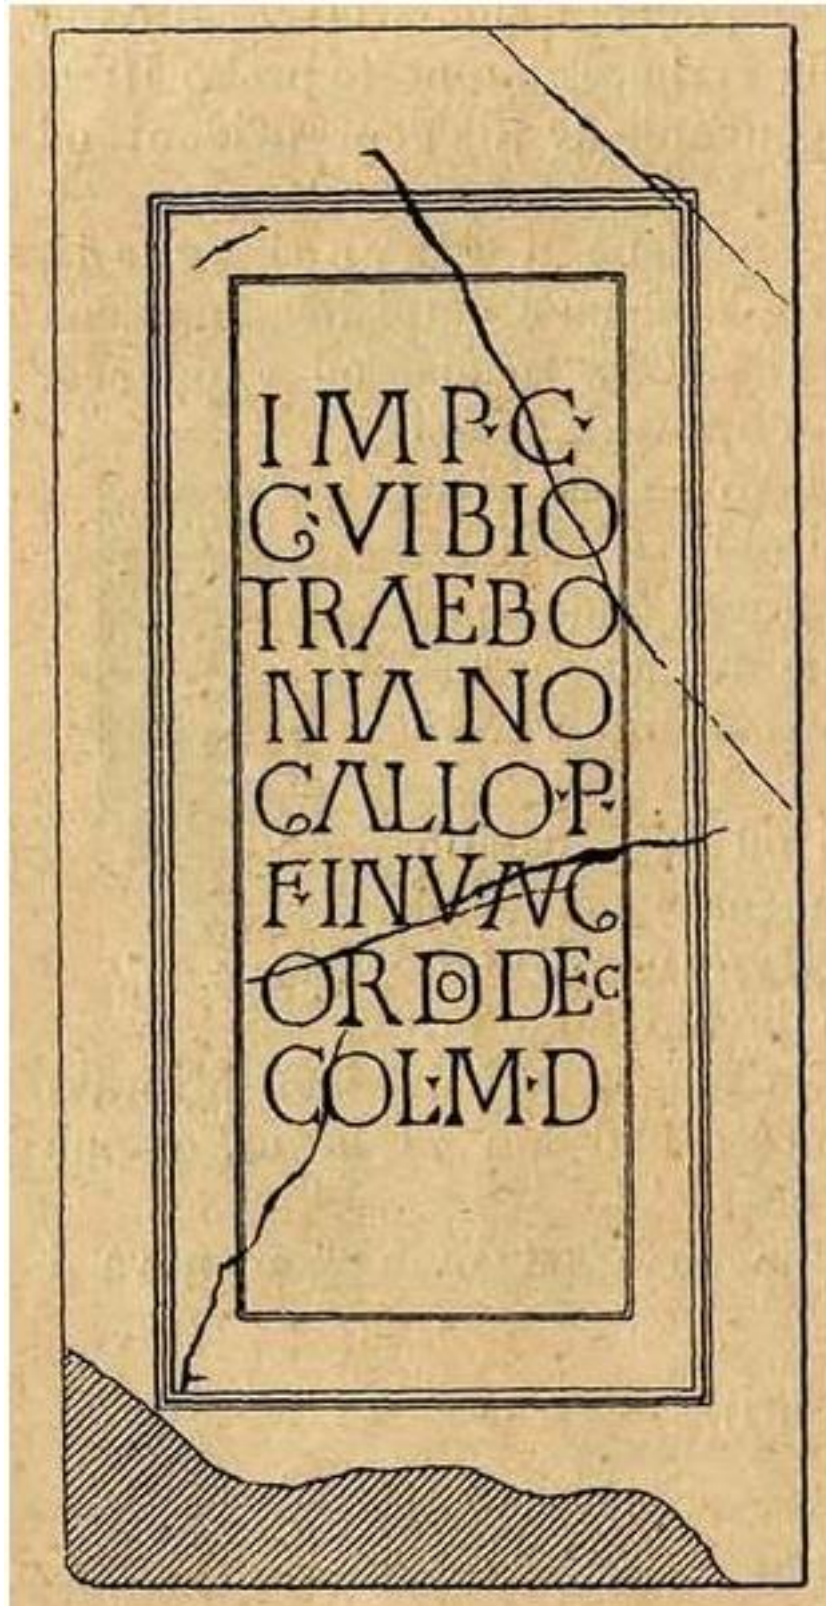 IMP·C·
G·VIBIO
TRAEBO
NIANO
GALLO·P·
F·INVAVG
ORDO DEC
COL·M·D